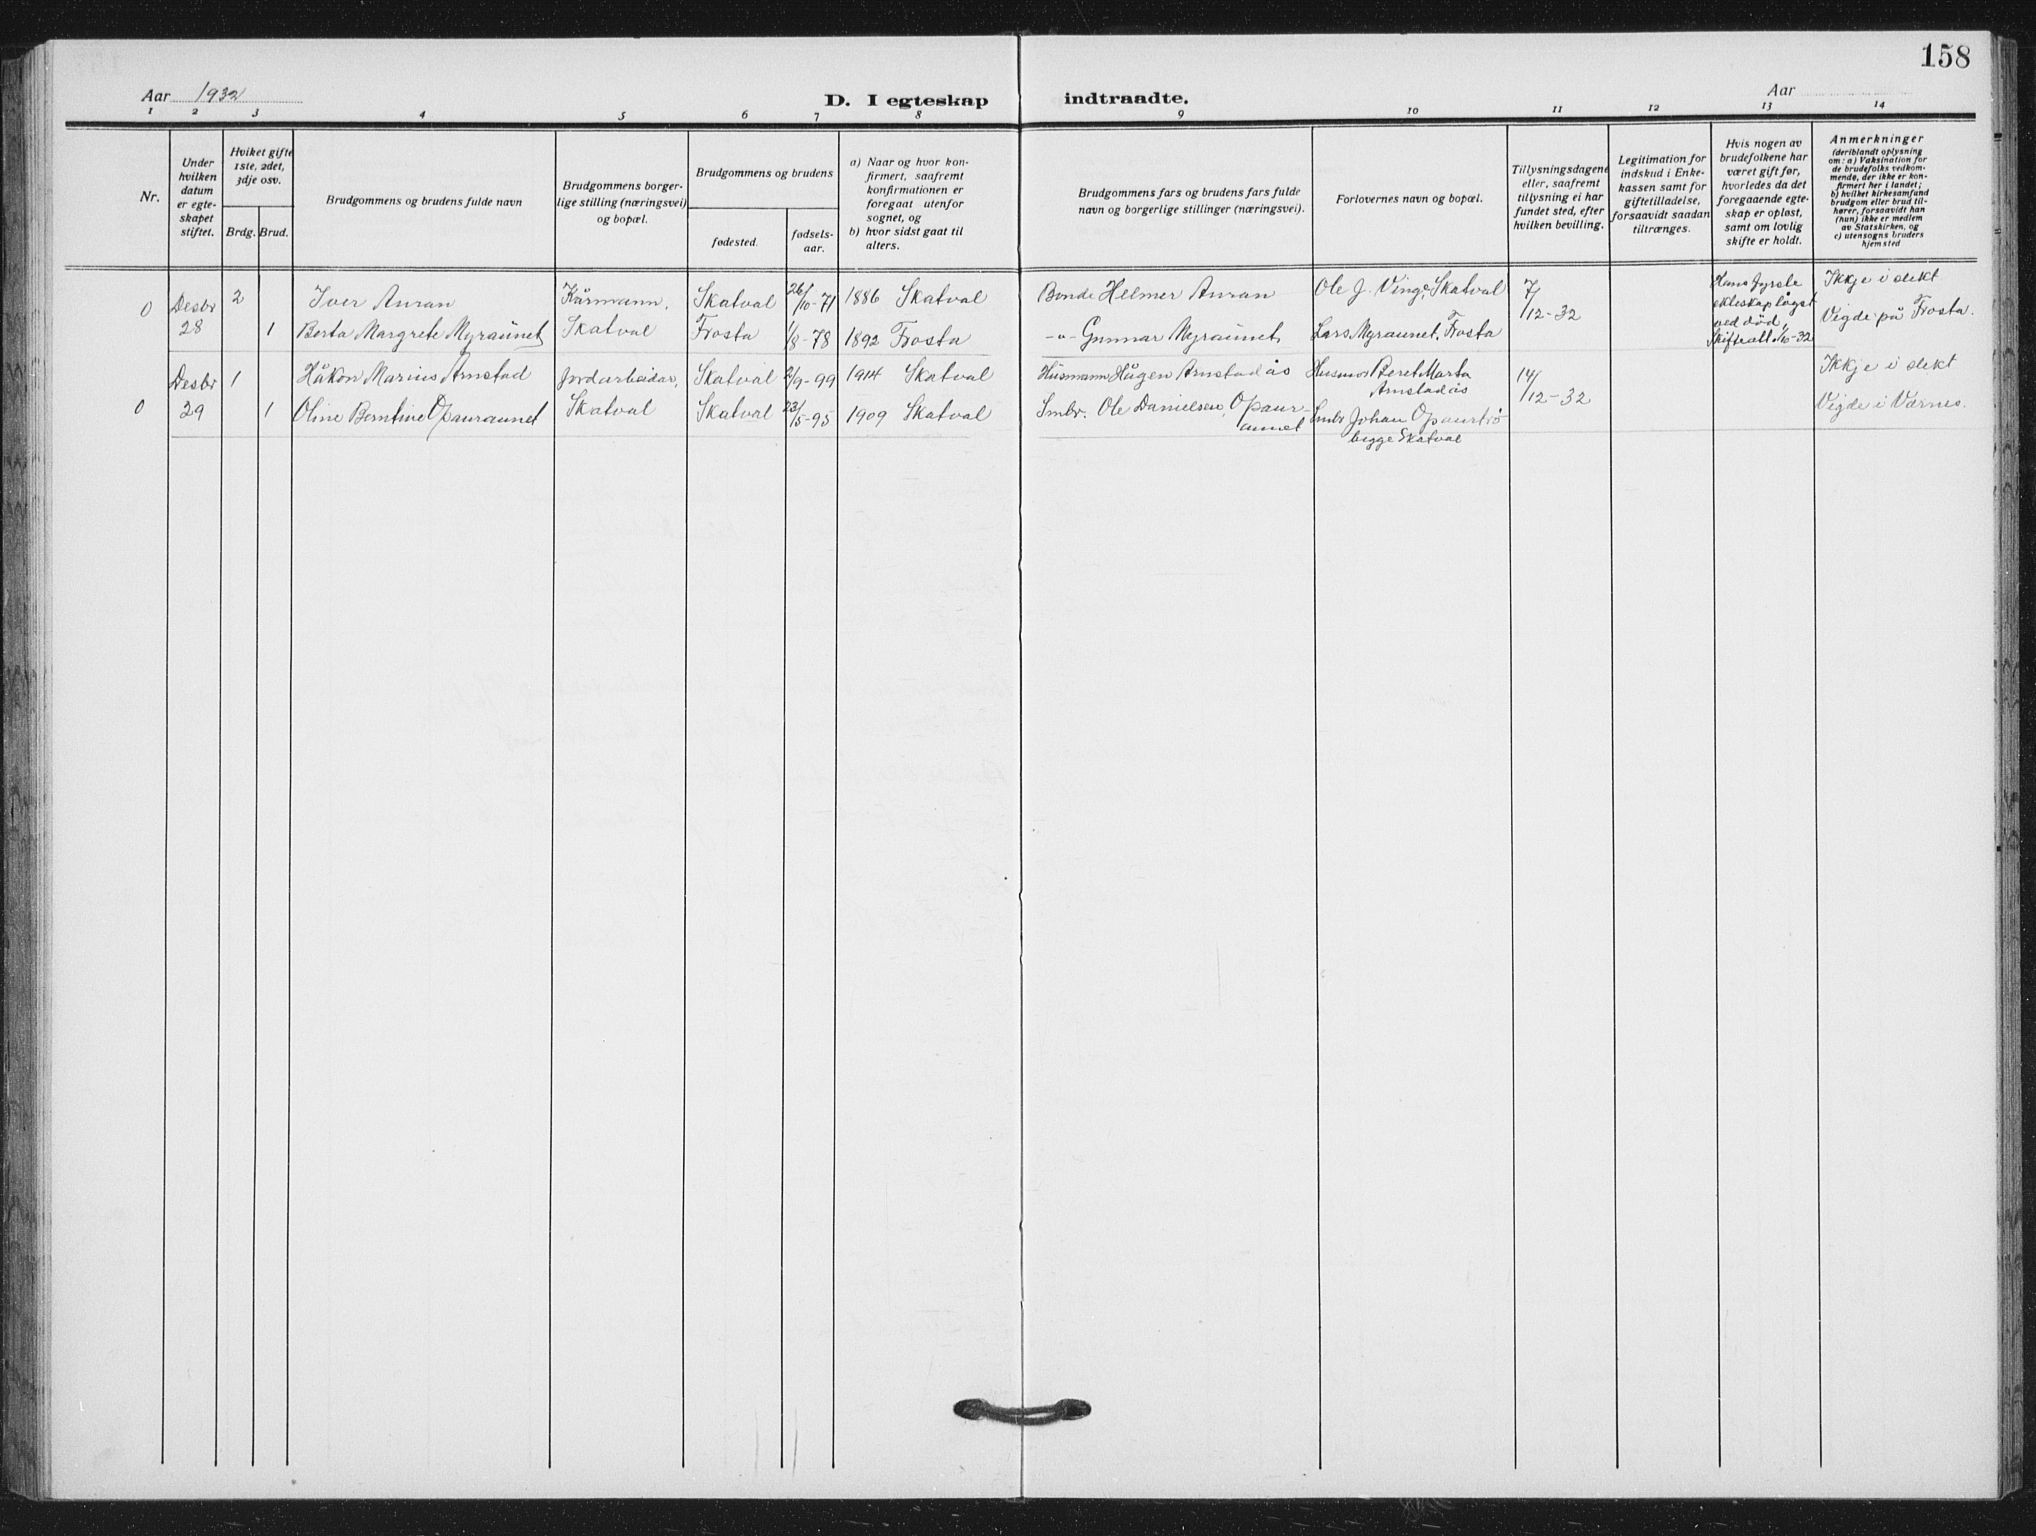 158
Aar 1932
D. I egteskap indtraadte.
Aar
1 2 3 4 5 6 7 8 9 10 11 12 13 14
Nr.
Under
hvilken
datum
er egte-
skapet
stiftet.
Hviket gifte
1ste, 2det,
3dje osv.
Brdg. Brud.
Brudgommens og brudens fulde navn
Brudgommens borger-
lige stilling (næringsvei)
og bopæl.
Brudgommens og brudens
fødested.
fødsels-
aar.
a) Naar og hvor kon-
firmert, saafremt
konfirmationen er
foregaat utenfor
sognet, og
b) hvor sidst gaat til
alters.
Brudgommens fars og brudens fars fulde
navn og borgerlige stillinger (næringsvei).
Forlovernes navn og bopæl.
Tillysningsdagene
eller, saafremt
tillysning ei har
fundet sted, efter
hvilken bevilling.
Legitimation for
indskud i Enke-
kassen samt for
giftetilladelse,
forsaavidt saadan
tiltrænges.
Hvis nogen av
brudefolkene har
været gift før,
hvorledes da det
foregaaende egte-
skap er opløst,
samt om lovlig
skifte er holdt.
Anmerkninger
(deriblandt oplysning
om: a) Vaksination for
de brudefolks vedkom-
mende, der ikke er kon-
firmert her i landet;
b) hvilket kirkesamfund
brudgom eller brud til-
hører, forsaavidt han
(hun) ikke er medlem
av Statskirken, og
c) utensogns bruders
hjemsted
0 Desbr 2 Iver Auran Kårmann, Skatval 26/10-71 1886 Skatval Bonde Helmer Auran Ole J. Vinge, Skatval 7/12-32
28 1 Berta Margrete Myraunet Skatval Frosta 1/8-78 1892 Frosta -"- Gunnar Myraunet, Lars Myraunet, Frosta
Hans fyrste
ekteskap løyst
ved død,
Skifte
-32
Ikkje i slekt
Vigde på Frosta.
Desbr 1 Håkon Marius Arnstad Jordarbeidar, Skatval 2/9-99 1914 Skatval Husmann Hågen Arnstadås Husmor Beret Marta
Arnstadås
14/12-32
Ikkje i slekt
0 29 1 Oline Berntine Opauraunet Skatval Skatval 23/5-95 1909 Skatval Smbr. Ole Danielsen, Opaur-
aunet
Smbr Johan
begge Skatval
Vigde i Værnes.